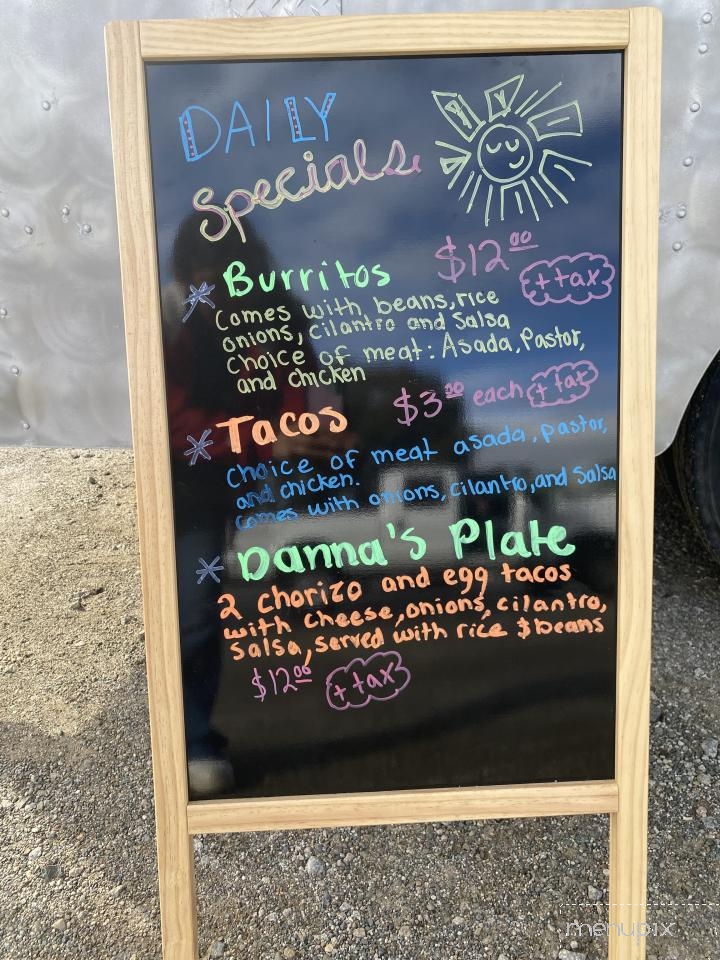 DAILY
Specials
Burritos $12.00
+ tax
Comes with beans, rice
onions, cilantro and Salsa
choice of meat: Asada, Pastor,
and chicken
Tacos $3.00 each + tax
choice of meat asada, pastor,
and chicken.
comes with onions, cilantro, and Salsa
Danna's Plate
2 chorizo and egg tacos
with cheese, onions, cilantro,
Salsa, served with rice $ beans
$12.00 + tax
menupix